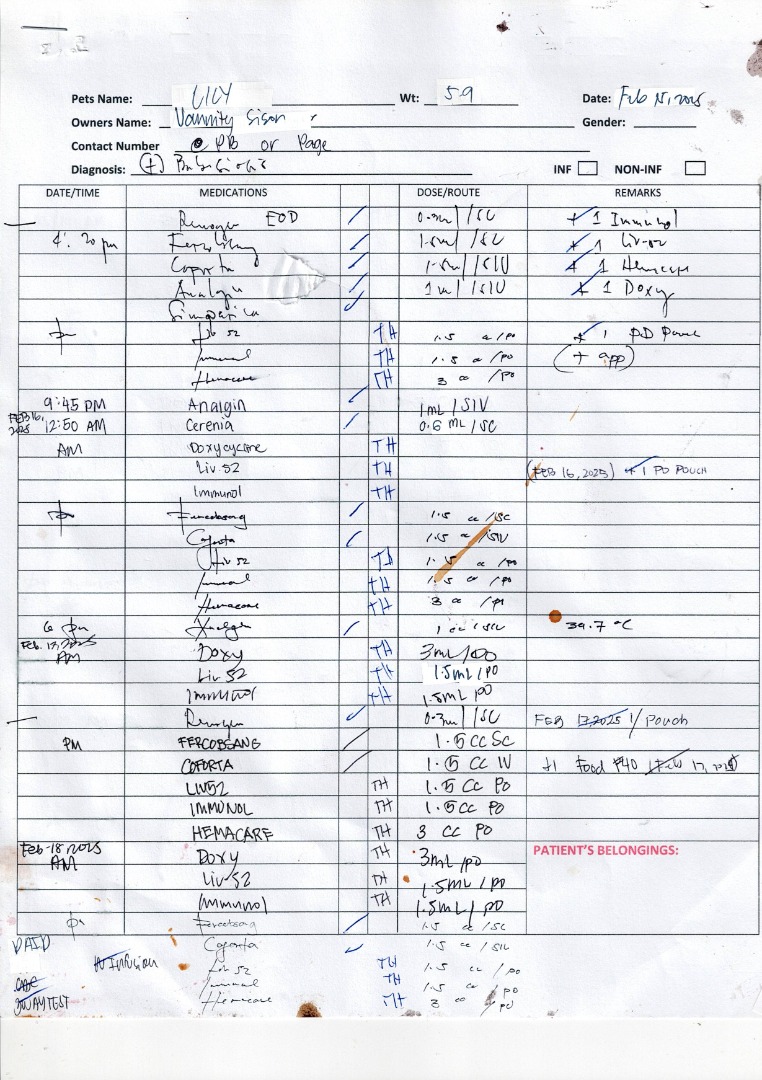 Pets Name: LILY Wt: 5.9 Date: Feb 15, 2025
Owners Name: Sison Gender:
Contact Number @ PB or Page
Diagnosis: (+) INF NON-INF
DATE/TIME MEDICATIONS DOSE/ROUTE REMARKS
EOD 0.3ml/SC + 1 Immunol
4:20 pm 1.5ml/SC + 1 Liv-52
1.5ml/SIV + 1 Hemacare
Analgin 1ml/SIV + 1 Doxy
Simparica
pm Liv 52 TH 1.5 cc/po + 1 PD Pouch
Immunol TH 1.5 cc/po (+ app)
Hemacare TH 3 cc/po
9:45 PM Analgin 1mL/SIV
FEB 16, 2025 12:50 AM Cerenia 0.6 mL/SC
AM Doxycycline TH
Liv.52 TH (FEB 16, 2025) + 1 PO POUCH
Immunol TH
pm Fercobsang 1.5 cc/SC
Coforta 1.5 cc/SIV
Liv 52 TH 1.5 cc/po
Immunol TH 1.5 cc/po
Hemacare TH 3 cc/po
6 pm Analgin 1 cc/SIV 39.7 °C
Feb. 17, 2025 AM Doxy TH 3mL/po
Liv 52 TH 1.5mL/po
Immunol TH 1.5mL po
0.3ml/SC FEB 17, 2025 1/ Pouch
PM FERCOBSANG 1.5 CC SC
COFORTA 1.5 CC IV +1 Food ₱40 (Feb 17, 2025)
LIV52 TH 1.5 CC PO
IMMUNOL TH 1.5 CC PO
HEMACARE TH 3 CC PO
Feb-18, 2025 AM Doxy TH 3mL/po PATIENT'S BELONGINGS:
Liv-52 TH 1.5mL/po
Immunol TH 1.5mL/po
pm Fercobsang 1.5 cc/SC
PAID Coforta 1.5 cc/SIV
IV Infusion Liv 52 TH 1.5 cc/po
CBC Immunol TH 1.5 cc/po
3WAY TEST Hemacare TH 3 cc/po